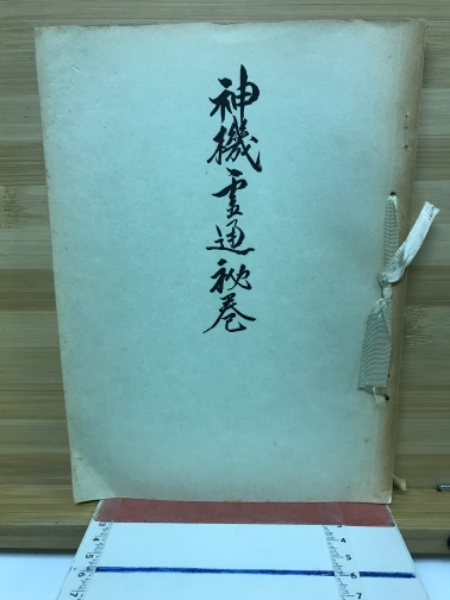 神機霊通秘巻
3
4
5
6
7
3
4
5
6
7